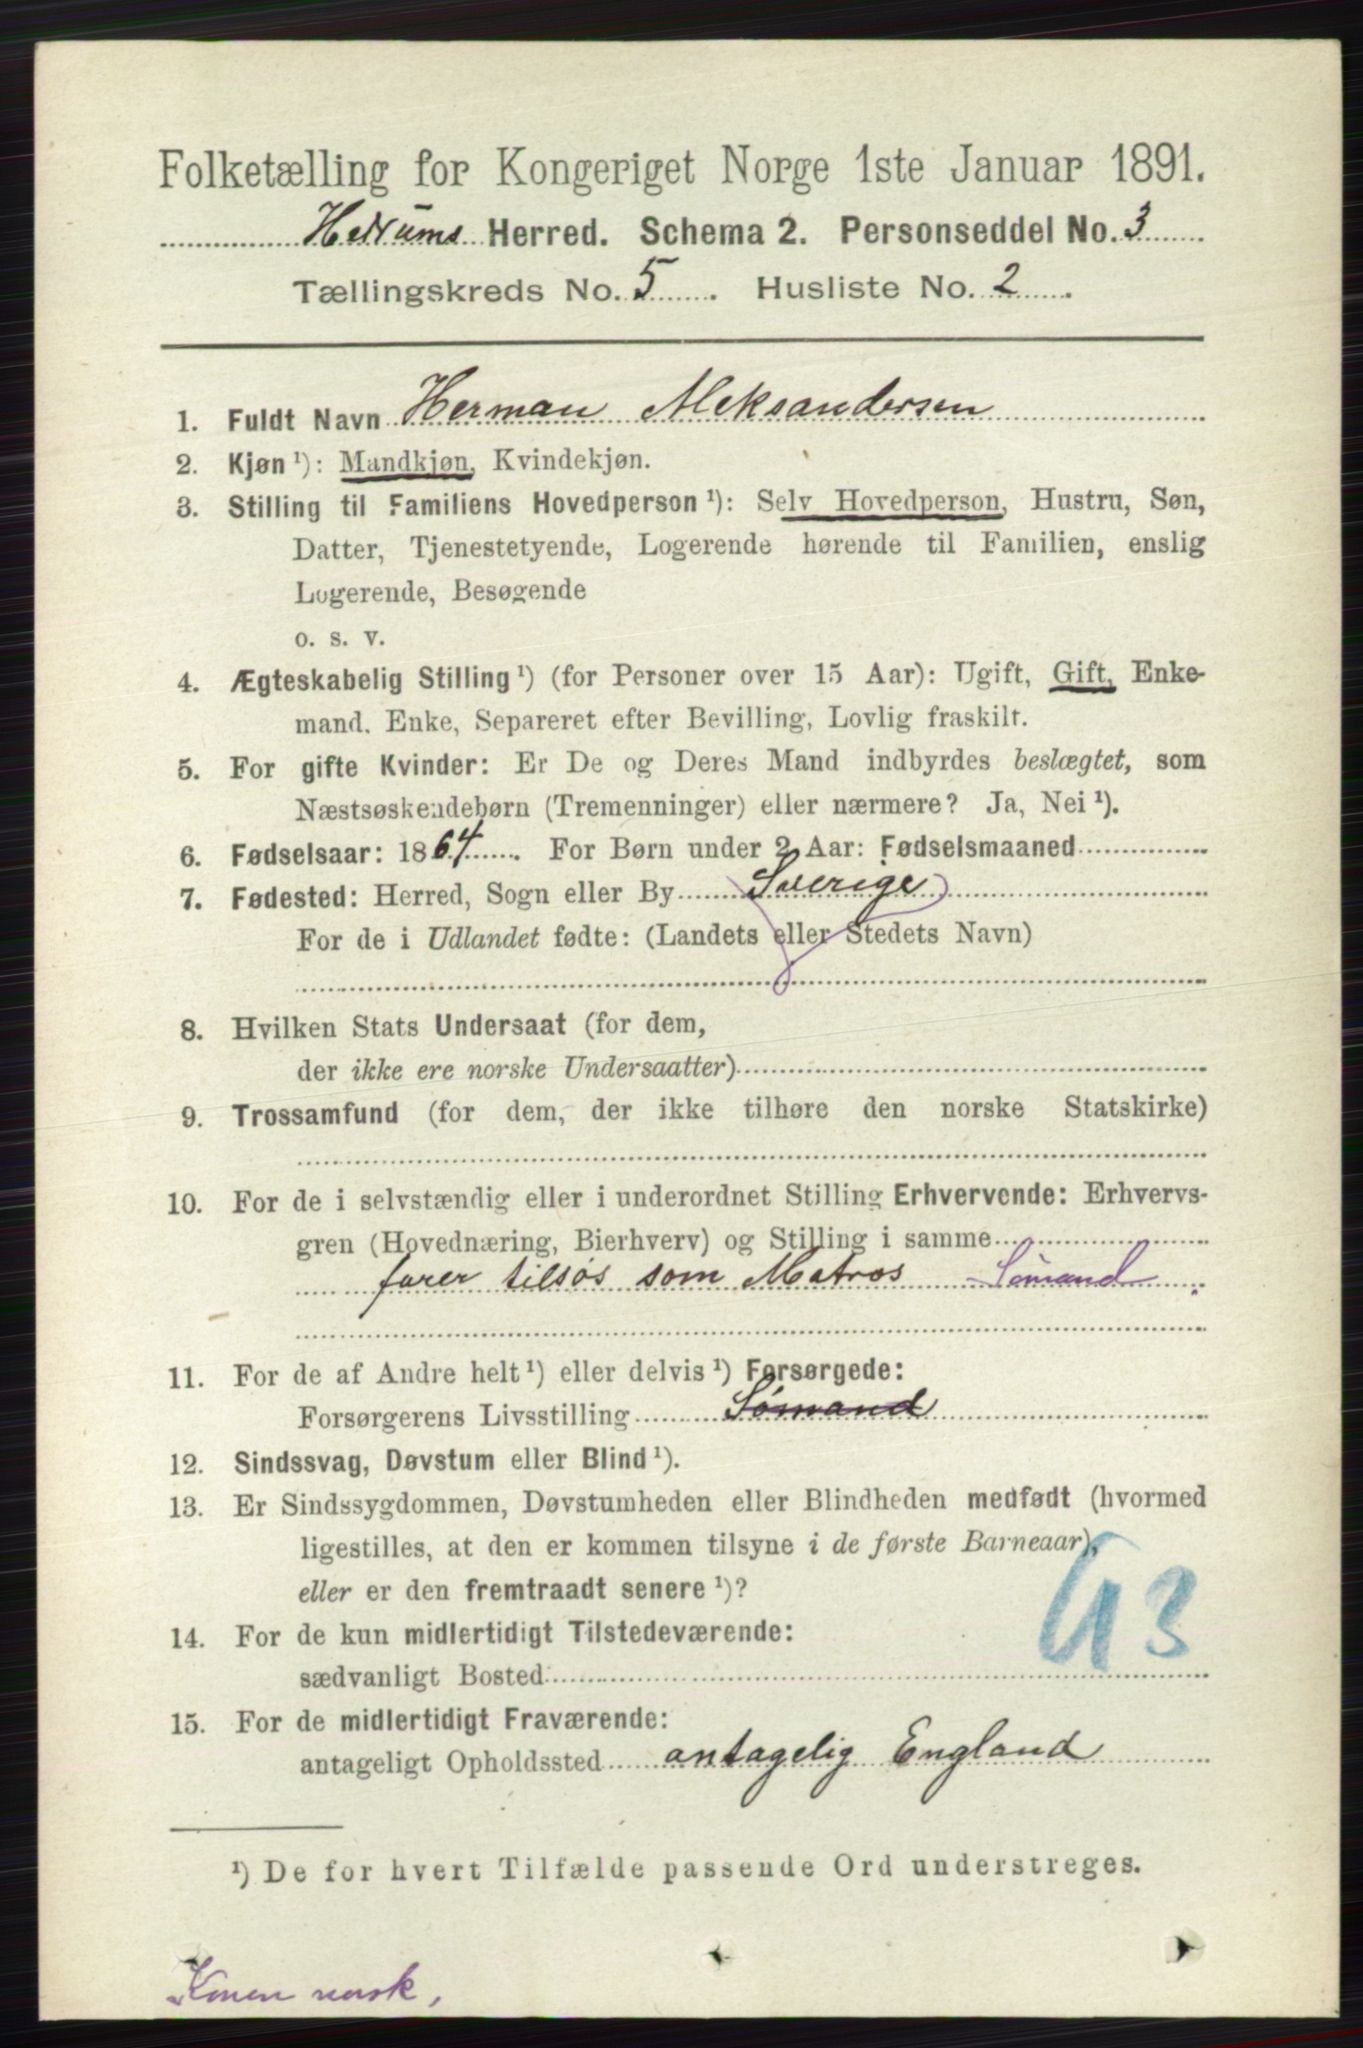 Folketælling for Kongeriget Norge 1ste Januar 1891.
Hedrums Herred. Schema 2. Personseddel No. 3
Tællingskreds No. 5. Husliste No. 2.
1. Fuldt Navn Herman Aleksandersen
2. Kjøn ¹): Mandkjøn, Kvindekjøn.
3. Stilling til Familiens Hovedperson ¹): Selv Hovedperson, Hustru, Søn,
Datter, Tjenestetyende, Logerende hørende til Familien, enslig
Logerende, Besøgende
o. s. v.
4. Ægteskabelig Stilling ¹) (for Personer over 15 Aar): Ugift, Gift, Enke-
mand, Enke, Separeret efter Bevilling, Lovlig fraskilt.
5. For gifte Kvinder: Er De og Deres Mand indbyrdes beslægtet, som
Næstsøskendebørn (Tremenninger) eller nærmere? Ja, Nei ¹).
6. Fødselsaar: 1864. For Børn under 2 Aar: Fødselsmaaned
7. Fødested: Herred, Sogn eller By Sverige
For de i Udlandet fødte: (Landets eller Stedets Navn)
8. Hvilken Stats Undersaat (for dem,
der ikke ere norske Undersaatter)
9. Trossamfund (for dem, der ikke tilhøre den norske Statskirke)
10. For de i selvstændig eller i underordnet Stilling Erhvervende: Erhvervs-
gren (Hovednæring, Bierhverv) og Stilling i samme
farer tilsøs som Matros Sømand
11. For de af Andre helt ¹) eller delvis ¹) Forsørgede:
Forsørgerens Livsstilling Sømand
12. Sindssvag, Døvstum eller Blind ¹).
13. Er Sindssygdommen, Døvstumheden eller Blindheden medfødt (hvormed
ligestilles, at den er kommen tilsyne i de første Barneaar),
eller er den fremtraadt senere ¹)?
14. For de kun midlertidigt Tilstedeværende:
sædvanligt Bosted
15. For de midlertidigt Fraværende:
antageligt Opholdssted antagelig England
¹) De for hvert Tilfælde passende Ord understreges.
Konen norsk,